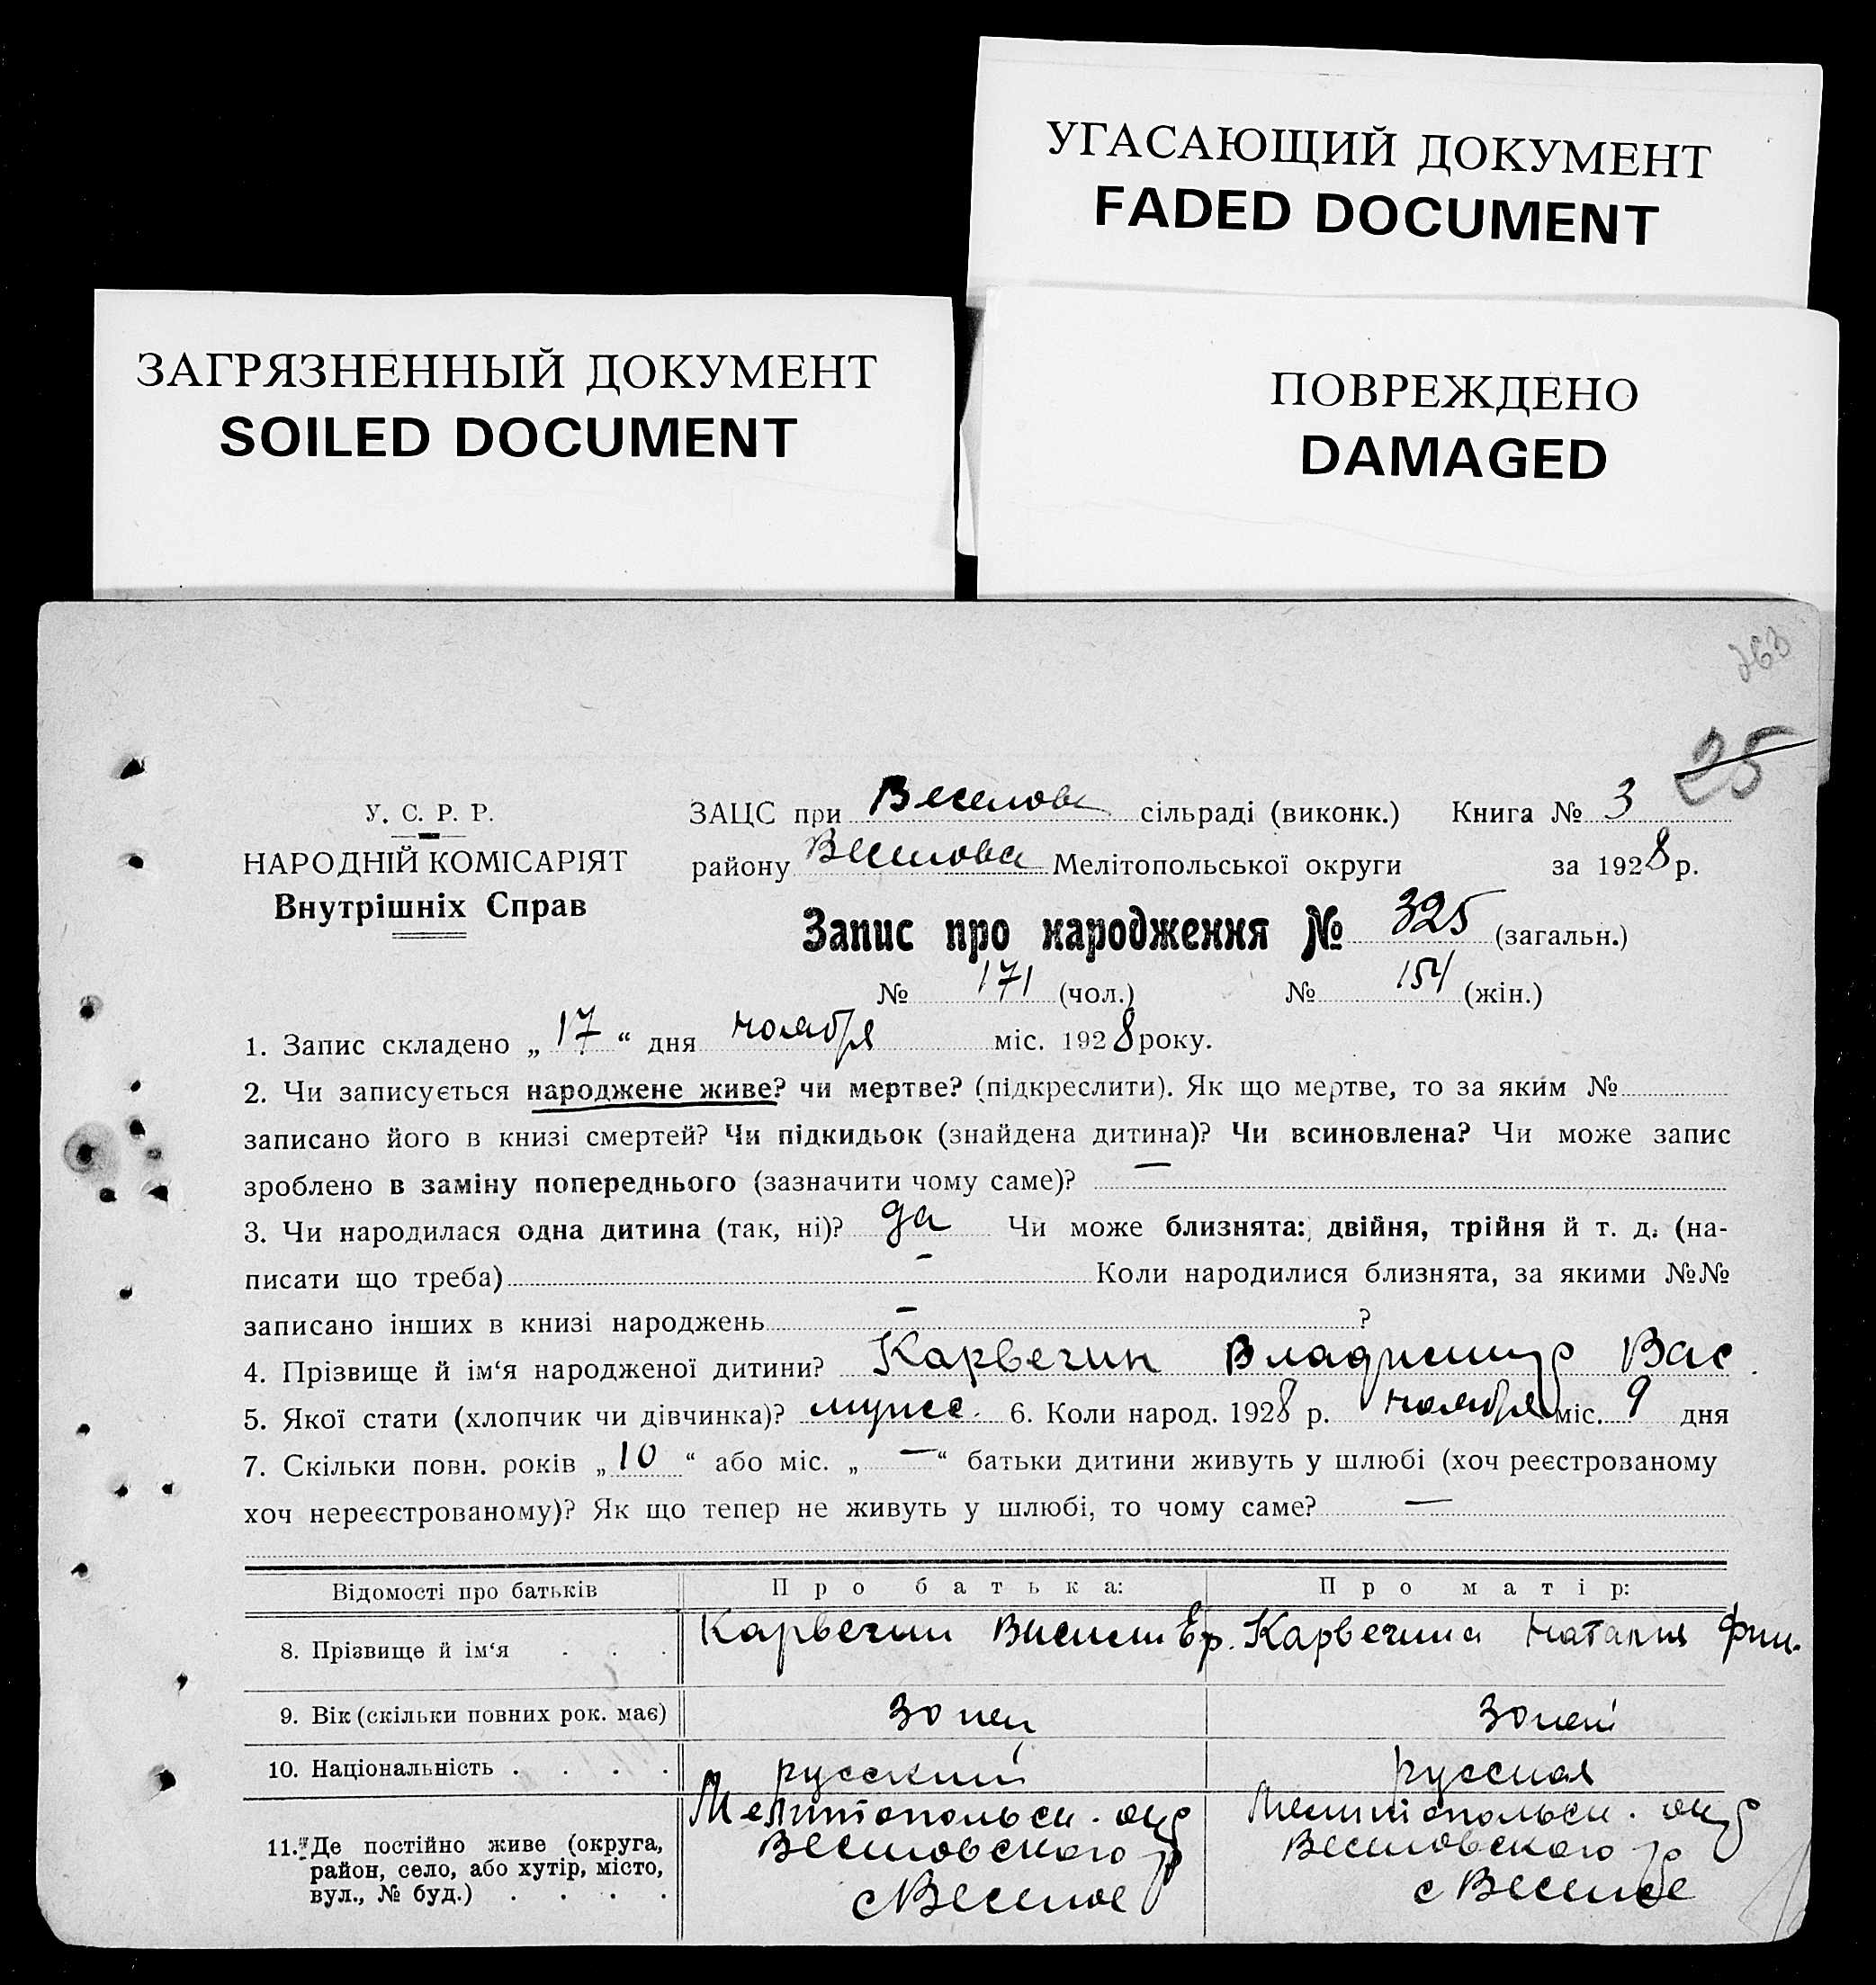 УГАСАЮЩИЙ ДОКУМЕНТ
FADED DOCUMENT
ЗАГРЯЗНЕННЫЙ ДОКУМЕНТ
SOILED DOCUMENT
ПОВРЕЖДЕНО
DAMAGED
263
25
У. С. Р. Р.
НАРОДНІЙ КОМІСАРІЯТ
Внутрішніх Справ
ЗАЦС при Веселовс сільраді (виконк.) Книга № 3
району Веселовск Мелітопольської округи за 1928 р.
Запис про народження № 325 (загальн.)
№ 171 (чол.) № 154 (жін.)
1. Запис складено „ 17 “ дня ноября міс. 1928 року.
2. Чи записується народжене живе? чи мертве? (підкреслити). Як що мертве, то за яким №
записано його в книзі смертей? Чи підкидьок (знайдена дитина)? Чи всиновлена? Чи може запис
зроблено в заміну попереднього (зазначити чому саме)? —
3. Чи народилася одна дитина (так, ні)? да Чи може близнята: двійня, трійня й т. д. (на-
писати що треба) — Коли народилися близнята, за якими №№
записано інших в книзі народжень — ?
4. Прізвище й ім‘я народженої дитини? Карвегин Владимир Вас
5. Якої стати (хлопчик чи дівчинка)? мужс. 6. Коли народ. 1928 р. ноября міс. 9 дня
7. Скільки повн. років „ 10 “ або міс. „ — “ батьки дитини живуть у шлюбі (хоч реєстрованому
хоч нереєстрованому)? Як що тепер не живуть у шлюбі, то чому саме? —
Відомості про батьків Про батька: Про матір:
8. Прізвище й ім‘я . . . Карвегин Василий Ер. Карвегина Наталия Фил.
9. Вік (скільки повних рок. має) 30 лет 30 лет
10. Національність . . . . русский русская
11. Де постійно живе (округа,
район, село, або хутір, місто,
вул., № буд.) . . . .
Мелитопольск. окр
Веселовского р
с Веселое
Мелитопольск. окр
Веселовского р
с Веселое